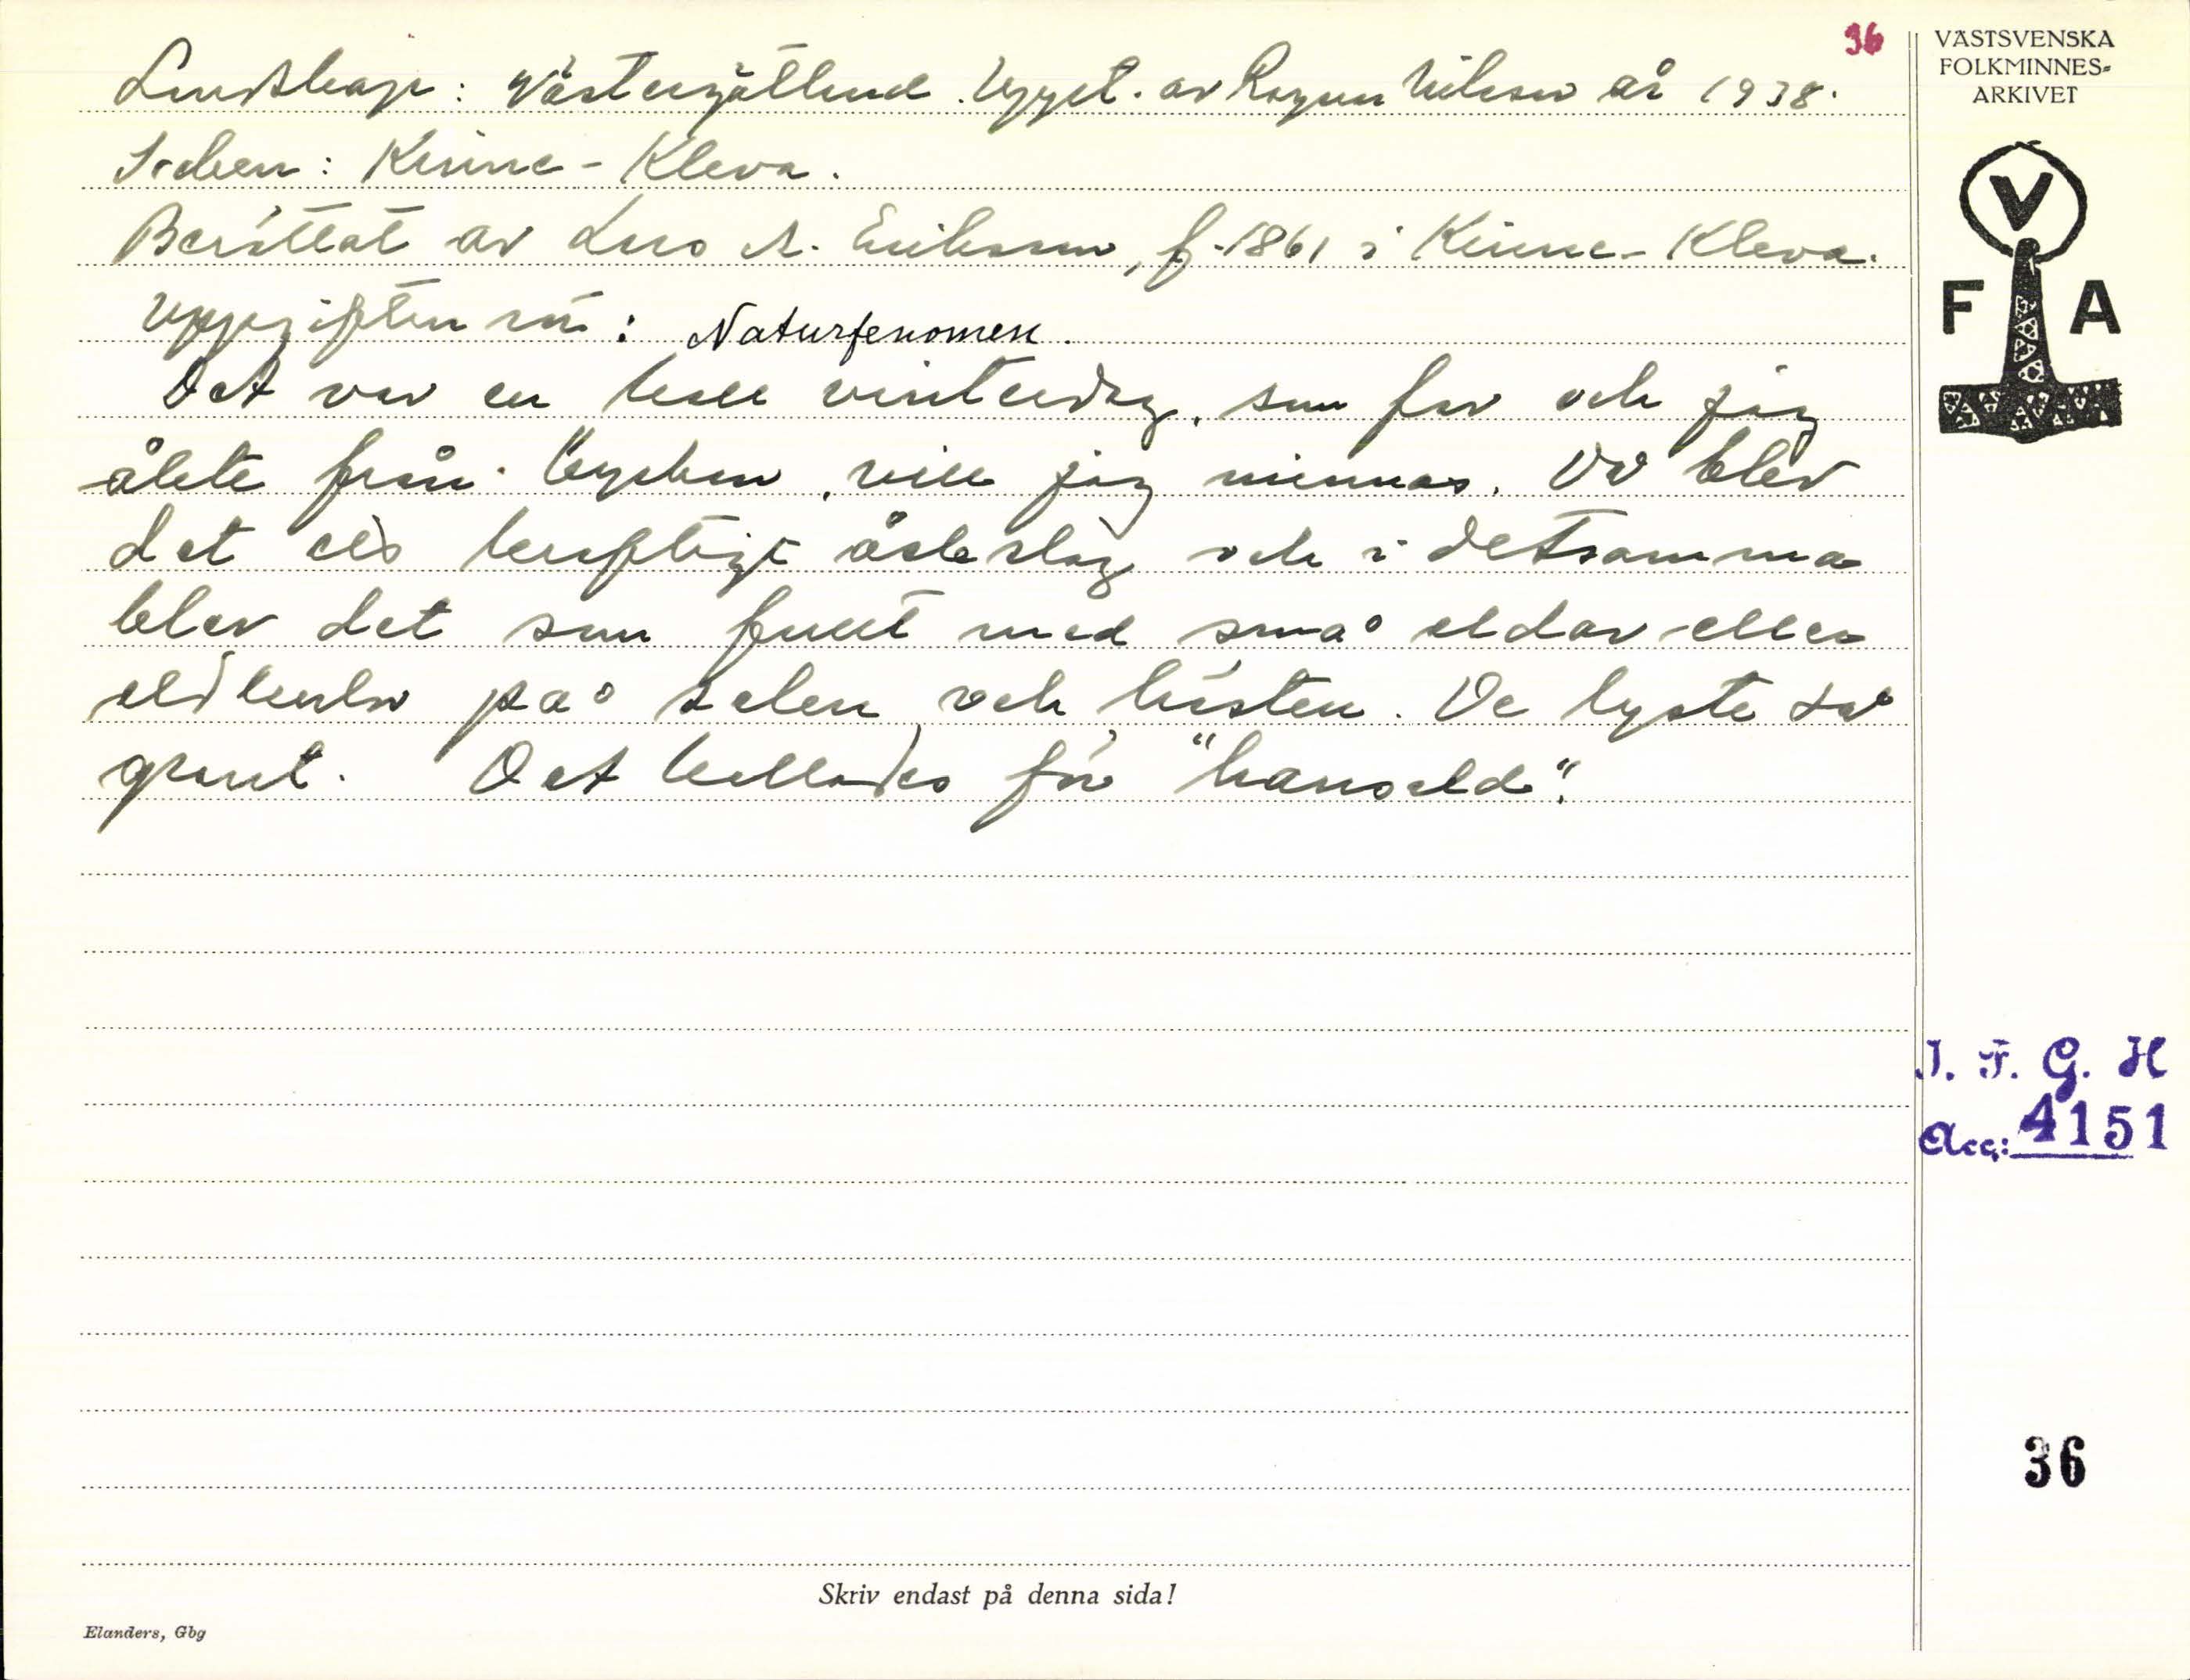 36
Landskap: Västergötland. Uppt. av Ragnar Nilsson år 1938.
Socken: Kinne-Kleva.
Berättat av Lars A. Eriksson, f. 1861 i Kinne-Kleva.
Uppgiften rör: Naturfenomen.
Det var en kall vinterdag, som far och jag
åkte från kyrkan, vill jag minnas. Då blev
det ett kraftigt åskslag och i detsamma
blev det som fullt med små eldar eller
eldkulor på selen och hästen. De lyste så
grant. Det kallades för "hanseld".
VÄSTSVENSKA
FOLKMINNES-
ARKIVET
V
F A
I. F. G. H
Acc: 4151
36
Skriv endast på denna sida!
Elanders, Gbg